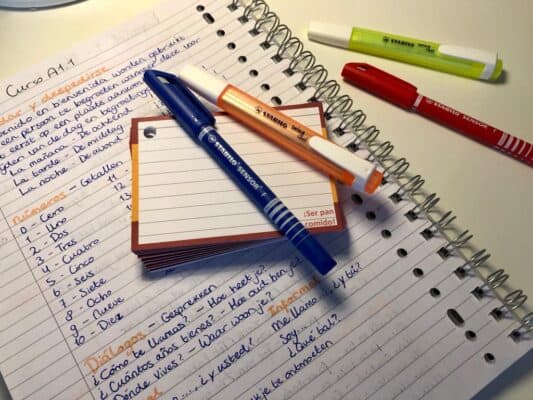 Curso A1.1
dar y despedirse
bienvenida worden gebruikt
een persoon te begroeten wanneer deze voor
eerst op een plaats aankomt
van de dag en begroeting
La mañana - De ochtend
La tarde - De middag
La noche - De avond
Números - Getallen
0 - Cero
1 - Uno
2 - Dos
3 - Tres
4 - Cuatro
5 - Cinco
6 - Seis
7 - Siete
8 - Ocho
9 - Nueve
10 - Diez
11
12
13
Diálogos - Gesprekken
¿Cómo te llamas? - Hoe heet je?
¿Cuántos años tienes? - Hoe oud ben je?
¿Dónde vives? - Waar woon je?
Informal
Me llamo ... ¿y tú?
Soy...
... ¿y usted?
¿Qué tal?
je te ontmoeten
¡Ser pan
comido!
STABILO SENSOR F
STABILO swing cool
STABILO swing cool
STABILO SENSOR